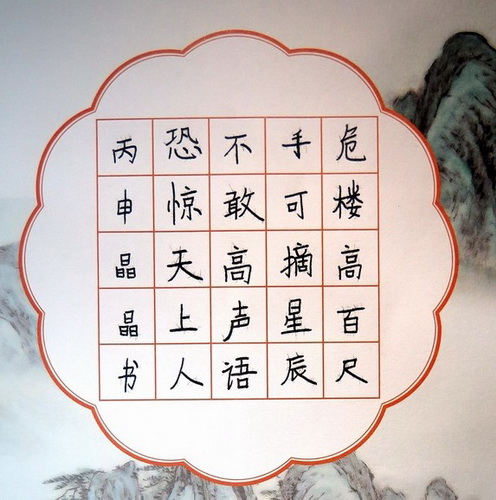 危楼高百尺
手可摘星辰
不敢高声语
恐惊天上人
丙申晶晶书